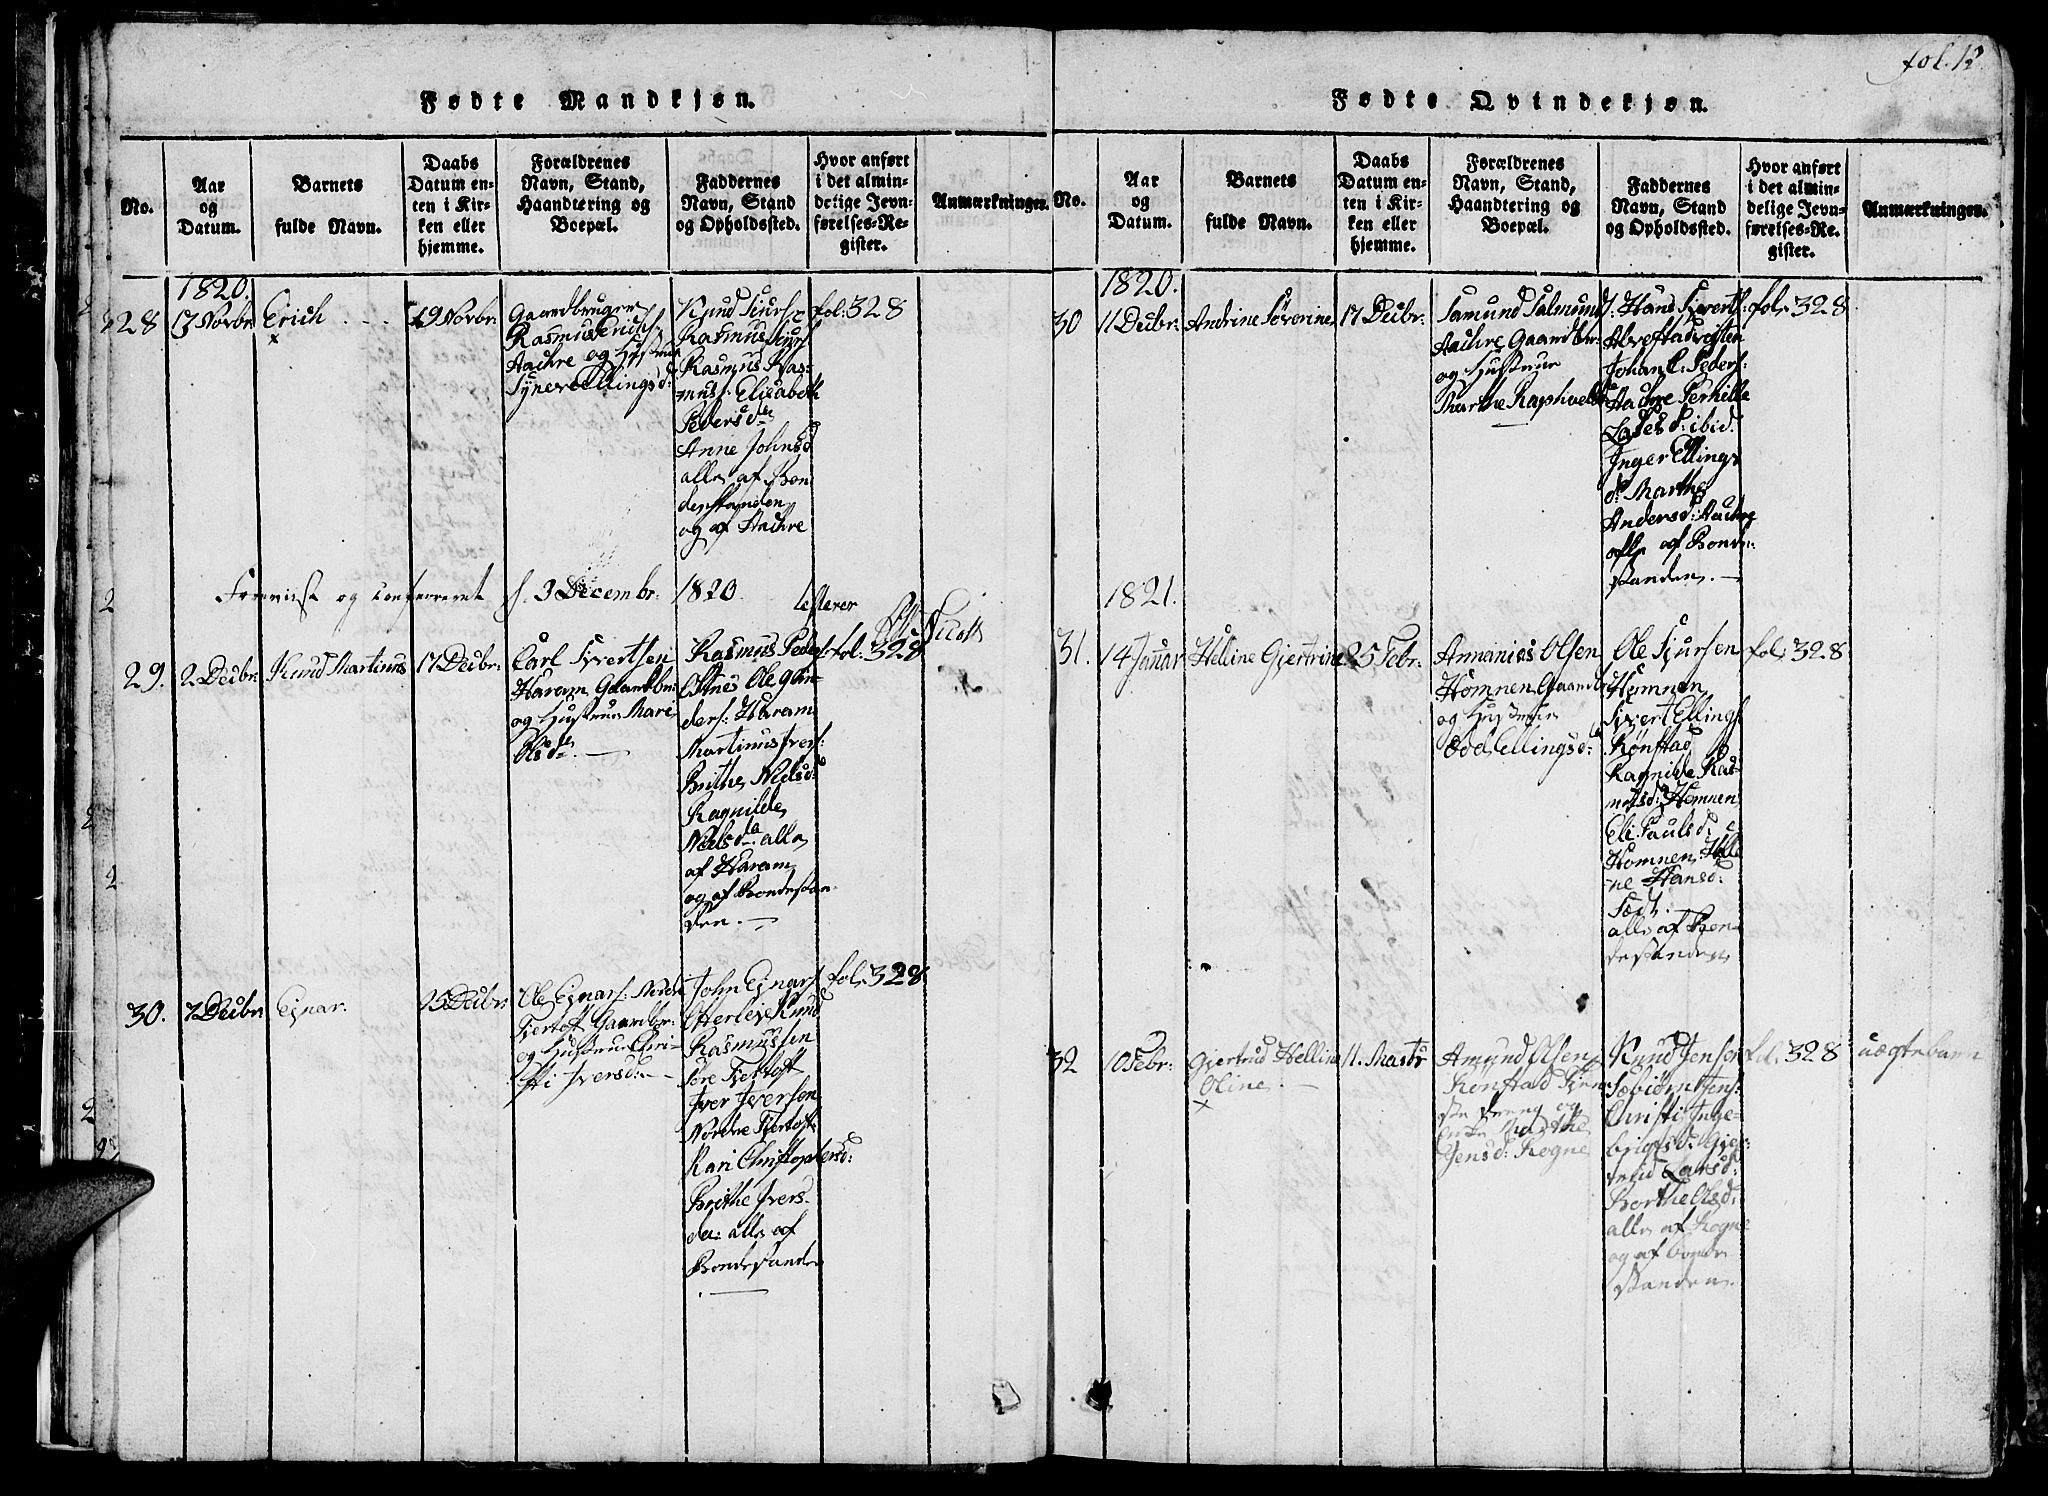 fol. 12
Fødte Mandkjøn.
No.
Aar
og
Datum.
Barnets
fulde Navn.
Daabs
Datum en-
ten i Kir-
ken eller
hjemme.
Forældrenes
Navn, Stand,
Haandtering og
Boepæl.
Faddernes
Navn, Stand
og Opholdssted.
Hvor anført
i det almin-
delige Jevn-
førelses-Re-
gister.
Anmærkninger.
1820.
28
13 Novbr:
Erich
19 Novbr:
Gaardbruger
Rasmus Erichs:
Aachre og Hustrue
Synever Ellingsd:
Knud Siurs:
Rasmus Siurs:
Rasmus Ras-
mus: Elisabeth
Pedersd
Anne Johnsd
alle af Bon
destanden
og af Aachre
fol: 328
Foreviist og confereret d. 3 Decembr: 1820
29.
2 Decbr:
Knud Martinus
17 Decbr:
Carl Sivertsen
Haram Gaardbr:
og Hustrue Mari
Olsd
Rasmus Peders
Ostnes Ole Gun-
ders: Haram
Martinus Ivers:
Brithe Nielsd:
Ragnilde
Nielsd alle
af Haram
og af Bondestan-
den.
fol: 328
30.
7 Decbr:
Ejnar.
25 Decbr:
Ole Ejnars: Nedre
Fjertoft Gaardbr:
og Hustrue Chri-
sti Iversd:
John Ejnars
Otterlei Knud
Rasmussen
Søre Fjertoft
Iver Iversen
Nordre Fjertoft
Kari Christophersd:
Brithe Ivers-
d: alle af
Bondestanden
fol. 328
Fødte Qvindekjøn.
No.
Aar
og
Datum.
Barnets
fulde Navn.
Daabs
Datum en-
ten i Kir-
ken eller
hjemme.
Forældrenes
Navn, Stand,
Haandtering og
Boepæl.
Faddernes
Navn, Stand
og Opholdssted.
Hvor anført
i det almin-
delige Jevn-
førelses-Re-
gister.
Anmærkninger.
1820.
30
11 Decbr:
Andrine Søverine
17 Decbr:
Samund Salmunds:
Aachre Gaardbr:
og Hustrue
Marthe Raphaelsd
Hans Siverts:
Johan C. Peders:
Aachre Pernille
Ladesd: ibid.
Inger Ellings
d: Marthe
Andersd: Aachre
alle af Bonde-
standen.
fol: 328
1821.
31.
14 Januar
Helline Gjertrine
25 Febr:
Annanias Olsen
Hamnen Gaardbr
og Hustrue
Odd Ellingsd:
Ole Siursen
Hamnen
Sivert Ellings
Rønstad
Ragnilde Ras-
musd: Hamnen
Eli Paulsd:
Hamnen Helle
ne Hansd:
alle af Bon-
destanden
fol. 328
32
10 Febr:
Gjertrud Helline
Oline.
11. Marts
Amund Olsen
Rønstad Tjene-
ste dreng og
Enke Marthe
Jensd: Rogne
Knud Jensen
Sebiørn Jens:
Christi Inge-
brigtsd: Gjer-
trud Larsd:
Borthe Olsd:
alle af Rogne
og af Bonde
standen.
fol. 328
uægtebarn